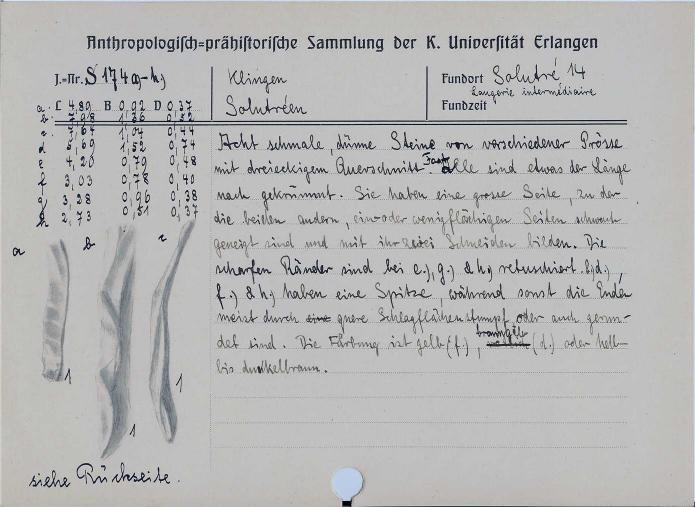 Anthropologisch=prähistorische Sammlung der K. Universität Erlangen
J.=Nr. S 174 a-h,
Klingen
Solutréen
Fundort Solutré 14
Laugerie intermédiaire
Fundzeit
a. L 4,89 B 0,92 D 0,37
b. 7,98 1,36 0,52
c. 7,64 1,04 0,44
d 5,69 1,52 0,74
e 4,20 0,79 0,48
f 3,03 0,78 0,40
g 3,28 0,96 0,38
h 2,73 0,51 0,37
Acht schmale, dünne Steine von verschiedener Grösse
mit dreieckigem Querschnitt. Fast alle sind etwas der Länge
nach gekrümmt. Sie haben eine grosse Seite, zu der
die beiden andern, ein- oder wenigflächigen Seiten schwach
geneigt sind und mit ihr zwei Schneiden bilden. Die
scharfen Ränder sind bei e.), g.) & h.) retuschiert. b.) d.),
f.) & h.) haben eine Spitze, während sonst die Enden
meist durch eine quere Schlagflächen stumpf oder auch gerun-
det sind. Die Färbung ist gelb (f.), braungelb (d.) oder hell-
bis dunkelbraun.
a b c
1 1 1
siehe Rückseite.